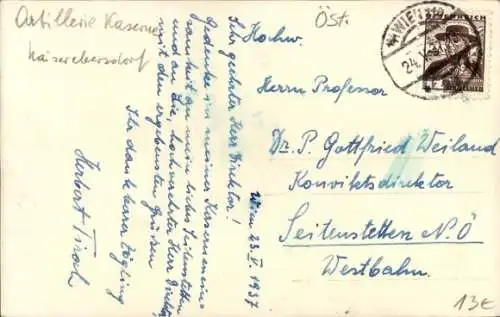 Artillerie Kaserne
Kaiserebersdorf
Öst.
WIEN
24.
ÖSTERREICH
Wien 23.V.1937
Sehr geehrter Herr Direktor!
Gedenke in meiner Kaserneneinsamkeit
an mein liebes Seitenstetten
und an Sie, hochverehrter Herr Direktor
mit den ergebensten Grüßen
Ihr dankbarer Zögling
Herbert
Hochw.
Herrn Professor
Dr. P. Gottfried Weiland
Konviktsdirektor
Seitenstetten N.Ö
Westbahn.
13€